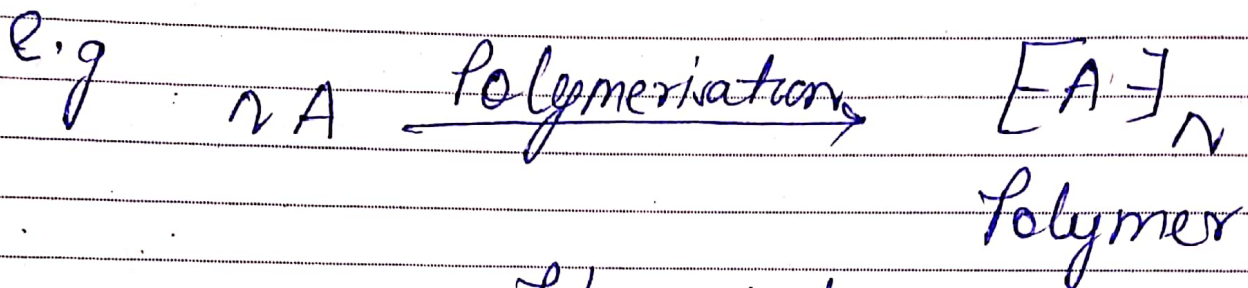 e.g nA Polymerisation [-A-]n
Polymer